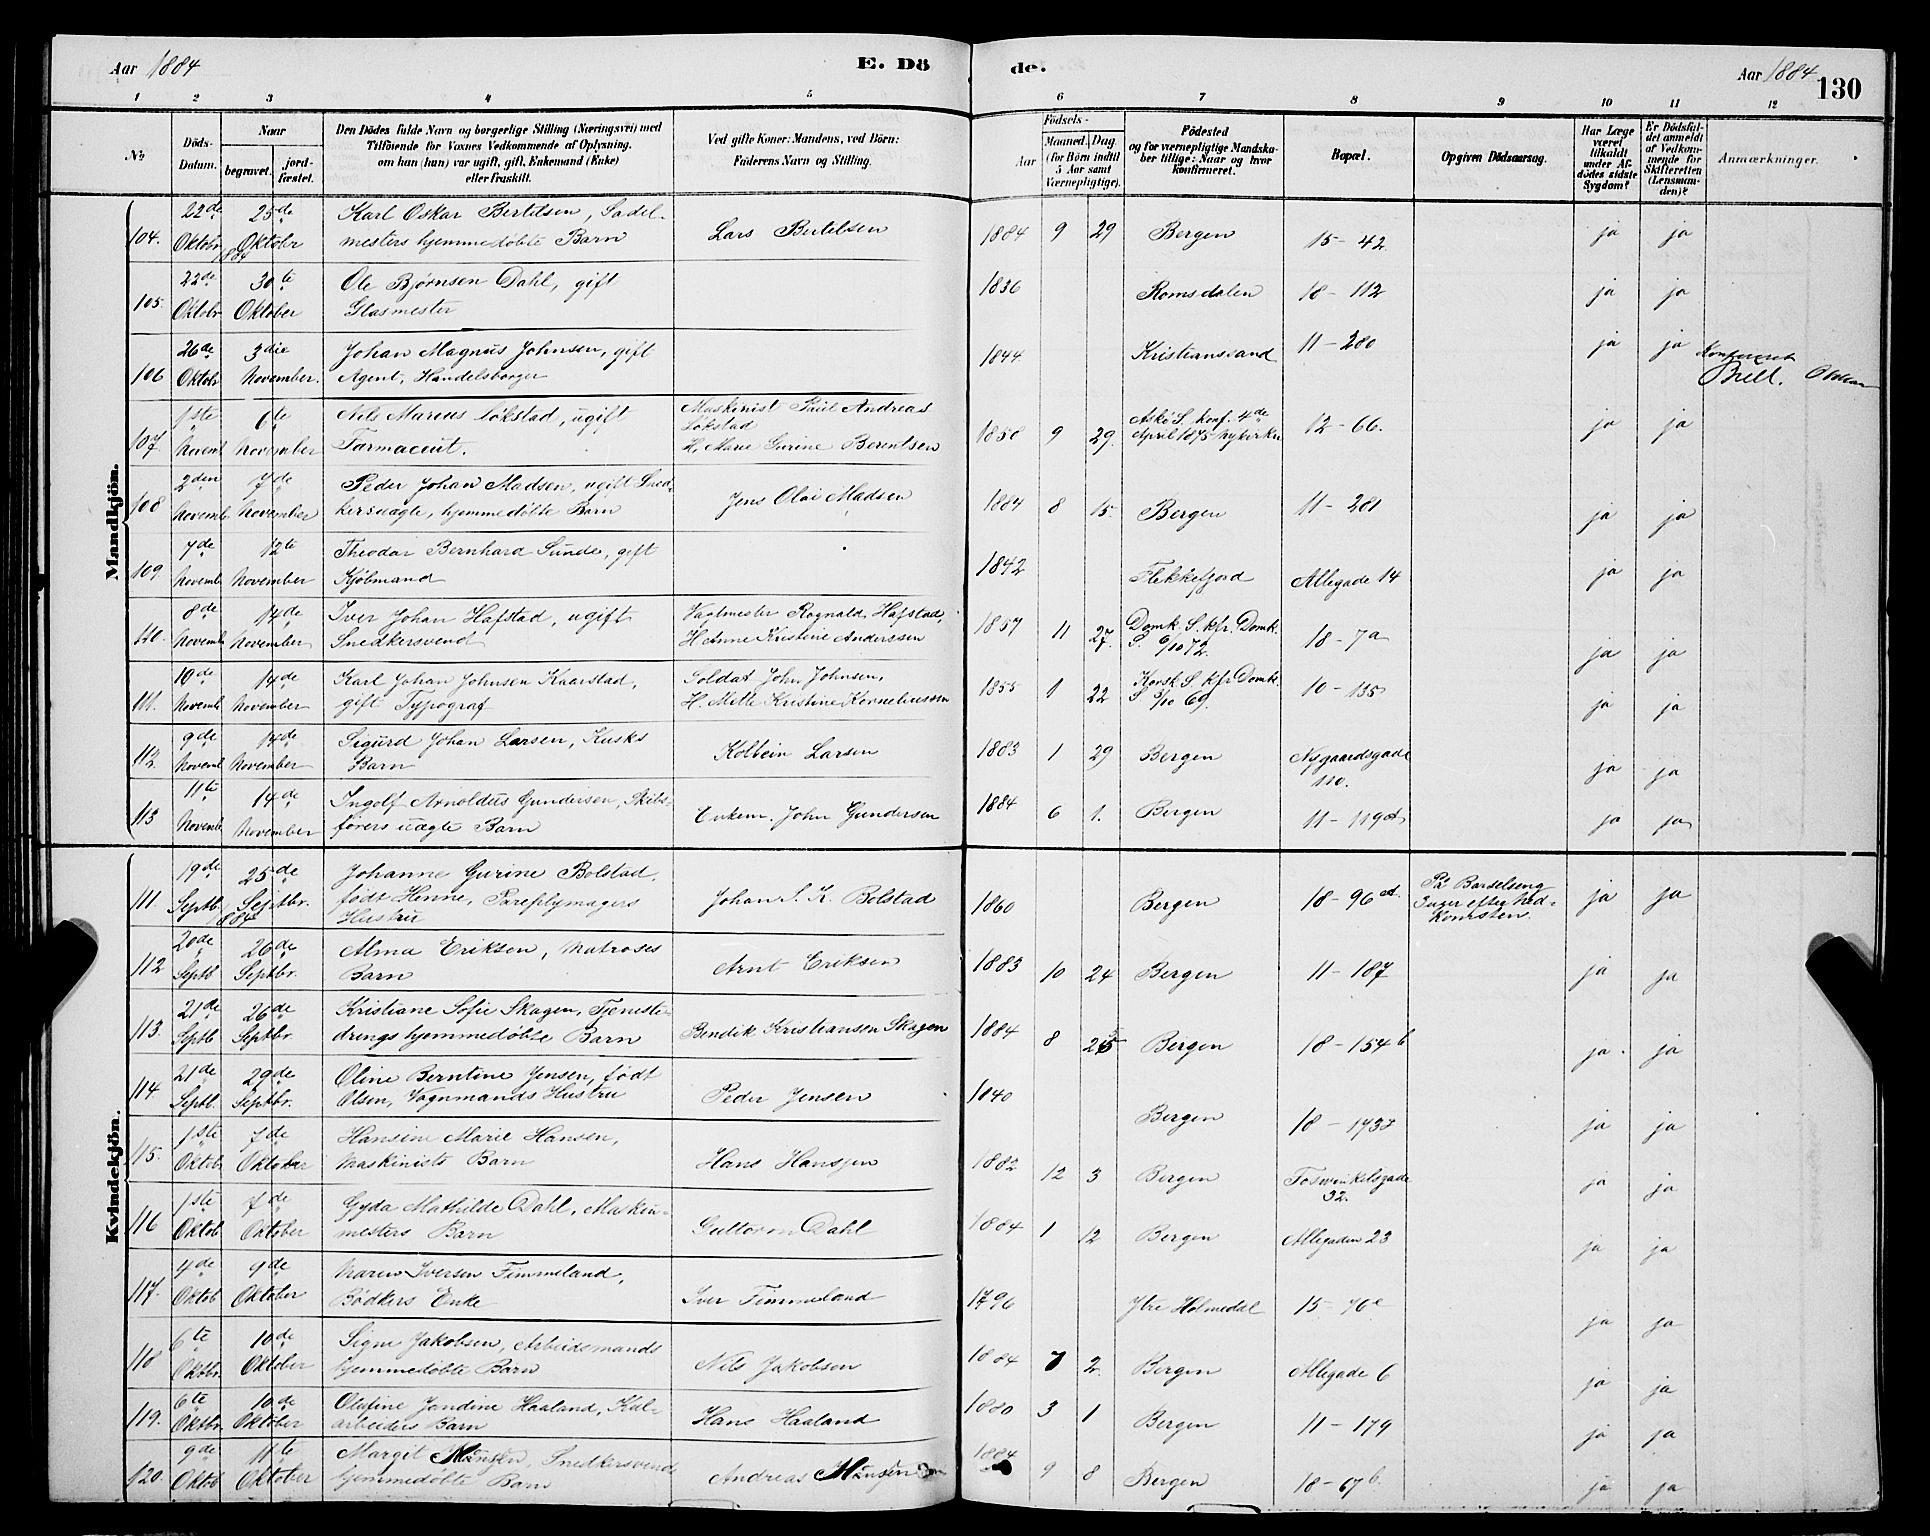 Aar 1884
E. Dö
de.
Aar 1884
130
1 2 3 4 5 6 7 8 9 10 11 12
No
Döds-Datum.
Naar
begravet.
jord-fæstet.
Den Dödes fulde Navn og borgerlige Stilling (Næringsvei) med
Tilföiende for Voxnes Vedkommende af Oplysning,
om han (hun) var ugift, gift, Enkemand (Enke)
eller fraskilt.
Ved gifte Koner: Mandens, ved Börn:
Faderens Navn og Stilling.
Födsels-
Aar
Maaned. Dag
(for Börn indtil
5 Aar samt
Værnepligtige).
Födested
og for værnepligtige Mandska-
ber tillige: Naar og hvor
konfirmeret.
Bopæl.
Opgiven Dödsaarsag.
Har Læge
været
tilkaldt
under Af-
dödes sidste
Sygdom?
Er Dödsfal-
det anmeldt
af Vedkom-
mende for
Skifteretten
(Lensman-
den)?
Anmærkninger.
Mandkjön.
104. 22de Oktobr 1884 25de Oktobr Karl Oskar Bertelsen, Sadel-
mesters hjemmedøbte Barn Lars Bertelsen 1884 9 29 Bergen 15-42 ja ja
105. 22de Oktobr 30te Oktober Ole Bjørnsen Dahl, gift
Glasmester 1836 Romsdalen 18-112 ja ja
106 26de Oktobr 3die November. Johan Magnus Johnsen, gift
Agent, Handelsborger 1844 Kristianssand 11-280 ja ja
107. 1ste Novemb 6te November Nils Marius Løkstad, ugift
Farmaceut. Maskinist Paul Andreas
Løkstad
H. Marie Gurine Berentsen 1858 9 29. Askø S. konf. 4de
April 1875 Nykirken 12-66. ja ja
108 2den Novemb. 7de November Peder Johan Madsen, ugift Sned-
kers uægte, hjemmedøbte Barn Jens Olai Madsen 1884 8 15. Bergen 11-281 ja ja
109. 7de Novemb 12te November Theodor Bernhard Sunde, gift
Kjøbmand 1842 Flekkefjord Allegade 14 ja ja
110. 8de Novemb 14de November Iver Johan Hafstad, ugift
Snedkersvend Vagtmester Rognald Hafstad,
H. Anne Kristine Anderssen 1857 11 27. Domk. S. kfr. Domk.
S. 6/10 72. 18-7a ja ja
111. 10de Novemb 14de November Karl Johan Johnsen Kaarstad,
gift Typograf Soldat John Johnsen,
H. Mette Kristine Kornelius 1855 1 22 Korsk. S kfr Domk.
S 3/10 69. 10-135 ja ja
112 9de Novemb 14de November Sigurd Johan Larsen, Kusks
Barn Kolbein Larsen 1883 1 29 Bergen Nygaardsgade
110. ja ja
113 11te Novemb. 14de November Ingolf Arnoldus Gundersen, Skibs-
førers uægte Barn Enkem. John Gundersen 1884 6 1. Bergen 11-119 ja ja
Kvindekjön.
111. 19de Septb. 1884 25de Septbr. Johanne Gurine Bolstad,
født Henne, Parepl­ymagers
Hustru Johan S. K. Bolstad 1860 Bergen 18-96 På Barselseng
Dager efter Ned-
komsten. ja ja
112 20de Septb 26de Septbr. Alma Eriksen, Matroses
Barn Arnt Eriksen 1883 10 24 Bergen 11-187 ja ja
113. 21de Septb 26de Septbr. Kristiane Sofie Skagen, Tjeneste-
drengs hjemmedøbte Barn Bendik Kristiansen Skagen 1884 8 25 Bergen 18-154b ja ja
114 21de Septb. 29de Septbr. Oline Berntine Jensen, født
Olsen, Vognmands Hustru Peder Jensen 1840 Bergen 18-173 ja ja
115. 1ste Oktob 7de Oktober Hansine Marie Hansen,
Maskinists Barn Hans Hansen 1882 12 3 Bergen Foswinkelsgade
32. ja ja
116 1ste Oktob 7de Oktober Gyda Mathilde Dahl, Maskin-
mesters Barn Guttorm Dahl 1884 1 12 Bergen Allegaden 23 ja ja
117. 4de Oktob 9de Oktober Maren Iversen Fimmeland,
Bødkers Enke Iver Fimmeland 1796 Ytre Holmedal 15-76c ja ja
118 6te Oktobr. 10de Oktober Signe Jakobsen, Arbeidsmands
hjemmedøbte Barn Nils Jakobsen 1884 7 2. Bergen Allegade 6 ja ja
119. 6te Oktbr. 10de Oktober Olufine Jondine Haaland, Kul-
arbeiders Barn Hans Haaland 1880 3 1 Bergen 11-179 ja ja
120. 9de Oktob 11te Oktober Margit Monsen, Snedkersvends
hjemmedøbte Barn Andreas Monsen 1884 9 8 Bergen 18-67b. ja ja